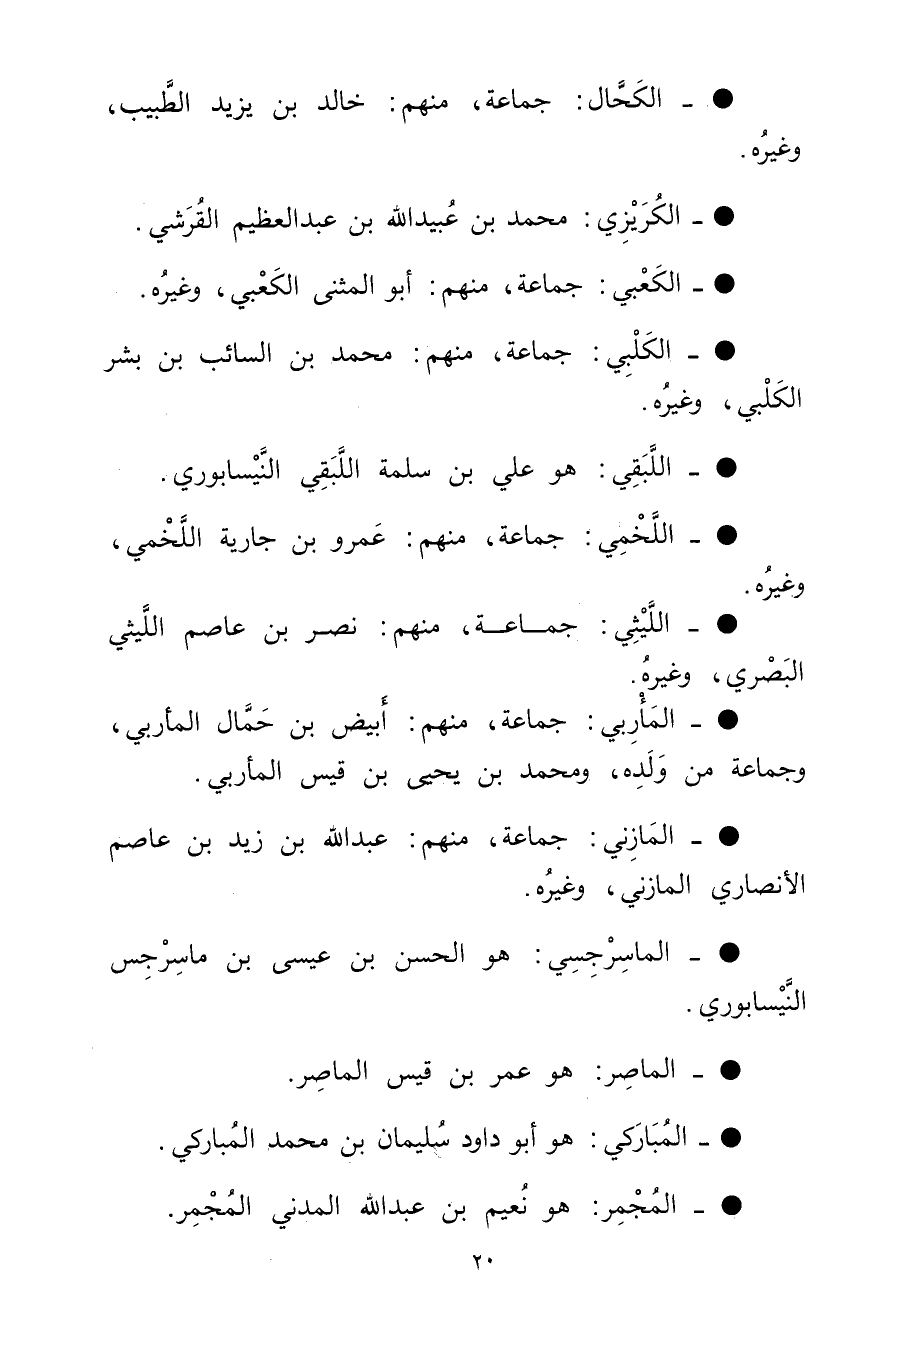 ● ـ الكَحَّال: جماعة، منهم: خالد بن يزيد الطَّبيب،
وغيرُه.
● ـ الكُرَيْزِي: محمد بن عُبيدالله بن عبدالعظيم القُرَشي.
● ـ الكَعْبي: جماعة، منهم: أبو المثنى الكَعْبي، وغيرُه.
● ـ الكَلْبِي: جماعة، منهم: محمد بن السائب بن بشر
الكَلْبي، وغيرُه.
● ـ اللَّبَقِي: هو علي بن سلمة اللَّبَقِي النَّيْسابوري.
● ـ اللَّخْمِي: جماعة، منهم: عَمرو بن جارية اللَّخْمي،
وغيرُه.
● ـ اللَّيْثِي: جمـاعـة، منهم: نصـر بن عاصم اللَّيثي
البَصْري، وغيرهُ.
● ـ المَأْرِبي: جماعة، منهم: أَبيض بن حَمَّال المأربي،
وجماعة من وَلَدِه، ومحمد بن يحيى بن قيس المأربي.
● ـ المَازِني: جماعة، منهم: عبدالله بن زيد بن عاصم
الأنصاري المازني، وغيرُه.
● ـ الماسِرْجِسِي: هو الحسن بن عيسى بن ماسِرْجِس
النَّيْسابوري.
● ـ الماصِر: هو عمر بن قيس الماصِر.
● ـ المُبَارَكي: هو أبو داود سُليمان بن محمد المُباركي.
● ـ المُجْمِر: هو نُعيم بن عبدالله المدني المُجْمِر.
٢٠